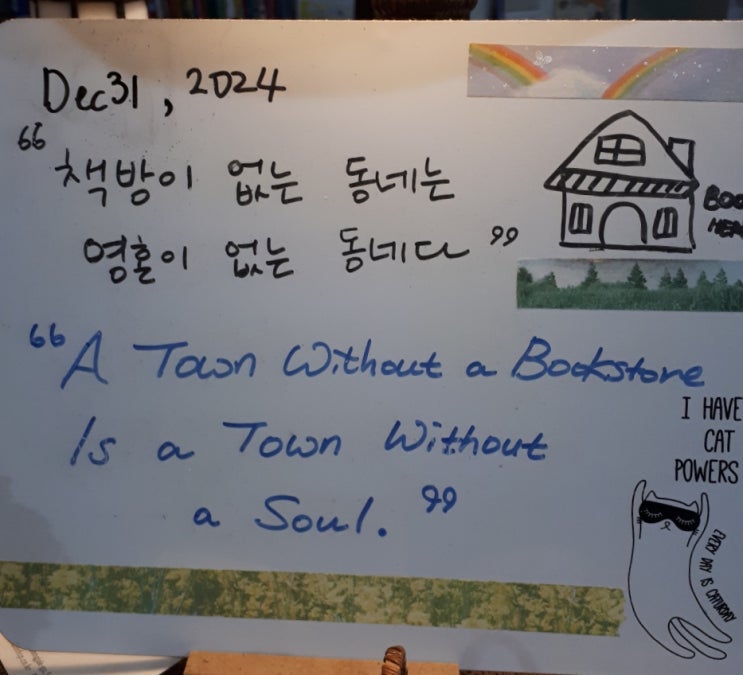 Dec 31, 2024
“책방이 없는 동네는
영혼이 없는 동네다”
“A Town Without a Bookstore
Is a Town Without
a Soul.”
I HAVE
CAT
POWERS
EVERY DAY IS CATURDAY